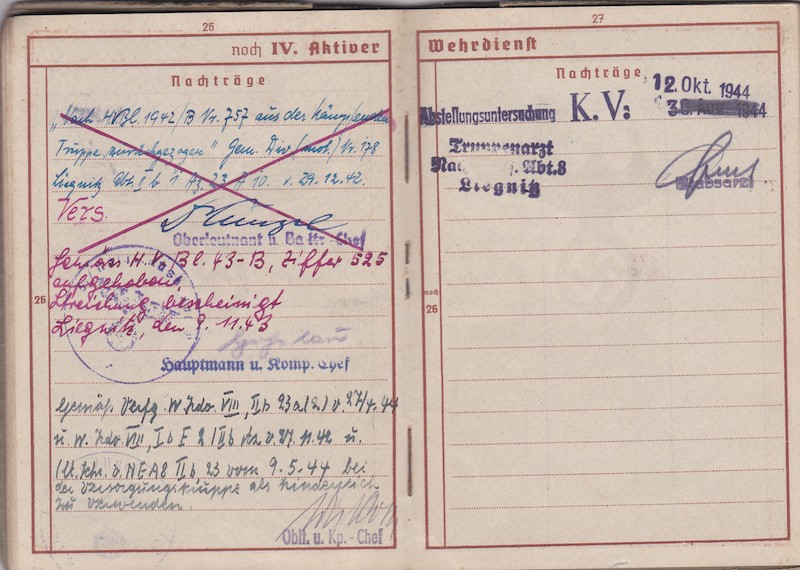 26
noch IV. Aktiver
Nachträge
"Nach HVBl. 1942/B Nr. 757 aus der kämpfenden
Truppe zurückgezogen" Gem. Div (mot.) Nr. 178
Liegnitz Abt. I b Az. 23 10. v. 29.12.42.
Vers.
Künzel
Oberleutnant u. Battr.-Chef
Gemäss H.V.Bl. 43-B, Ziffer 525
aufgehoben
26
Streichung bescheinigt
Liegnitz, den 9.11.43
Hauptmann u. Komp. Chef
Gemäß. Verfg. W.Kdo VIII, IIb 23 a(2) v. 27/4.44
u. W.Kdo VIII, Ib E 2/IIb v. 27.11.42 u.
lt. Schr. v. NEA8 IIb 23 vom 9.5.44 bei
der Versorgungstruppe als kinderreich
zu verwenden.
Oblt. u. Kp.-Chef
27
Wehrdienst
Nachträge
12. Okt. 1944
Abstellungsuntersuchung K.V:
1944
Truppenarzt
Abt. 8
Liegnitz
Stabsarzt
noch
26